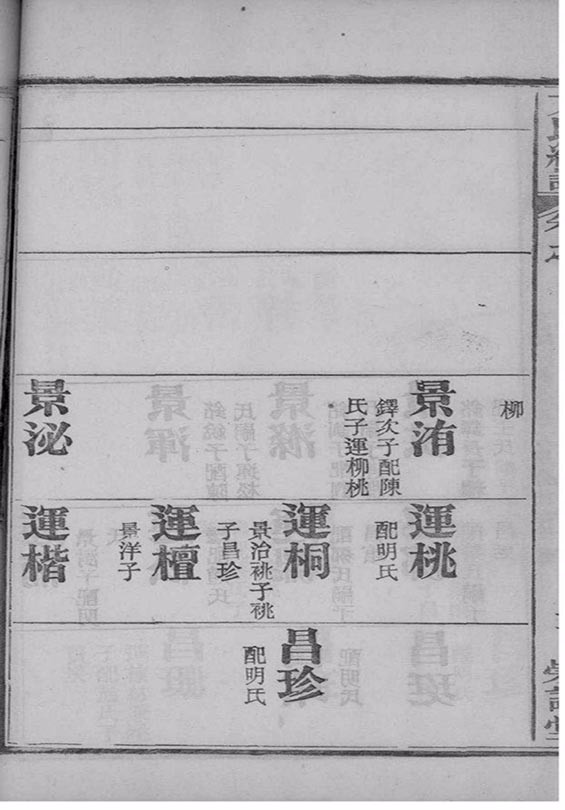 柳
景洧
鐸次子配陳
氏子運柳桃
景泌
運桃
配明氏
運桐
景治祧子祧
子昌珍
運檀
景洋子
運楷
昌珍
配明氏